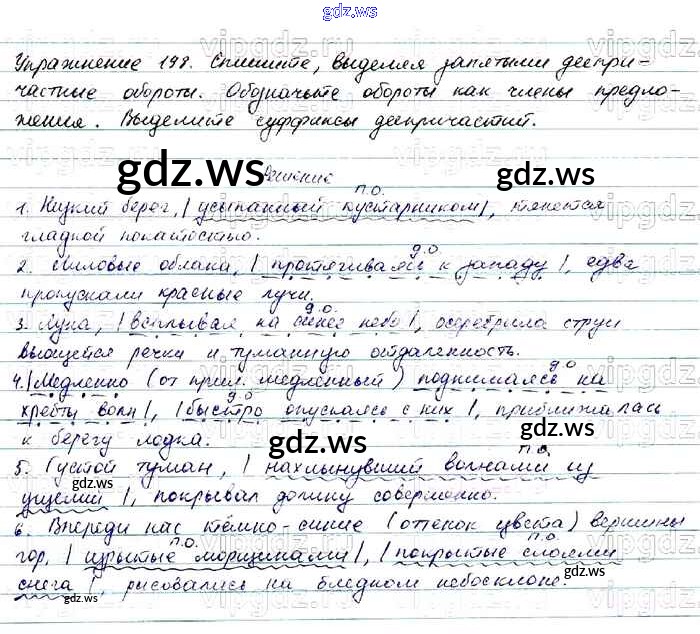 gdz.ws
Упражнение 198. Спишите, выделяя запятыми деепри-
частные обороты. Обозначьте обороты как члены предло-
жения. Выделите суффиксы деепричастий.
gdz.ws
gdz.ws
Решение
п.о.
1. Низкий берег, | усыпанный кустарником |, тянется
гладкой покатостью.
д.о
2. Лиловые облака, | протягиваясь к западу |, едва
пропускали красные лучи.
д.о.
3. Луна, | всплывая на синее небо |, осеребрила струи
вьющейся речки и туманную отдаленность.
д.о
4. | Медленно (от прил. медленный) поднимаясь на
д.о
хребты волн |, | быстро опускаясь с них |, приближалась
к берегу лодка.
gdz.ws
п.о.
5. Густой туман, | нахлынувший волнами из
ущелий |, покрывал долину совершенно.
gdz.ws
6. Впереди нас тёмно-синие (оттенок цвета) вершины
п.о. п.о.
гор, | изрытые морщинами |, | покрытые слоями
снега |, рисовались на бледном небосклоне.
gdz.ws
gdz.ws